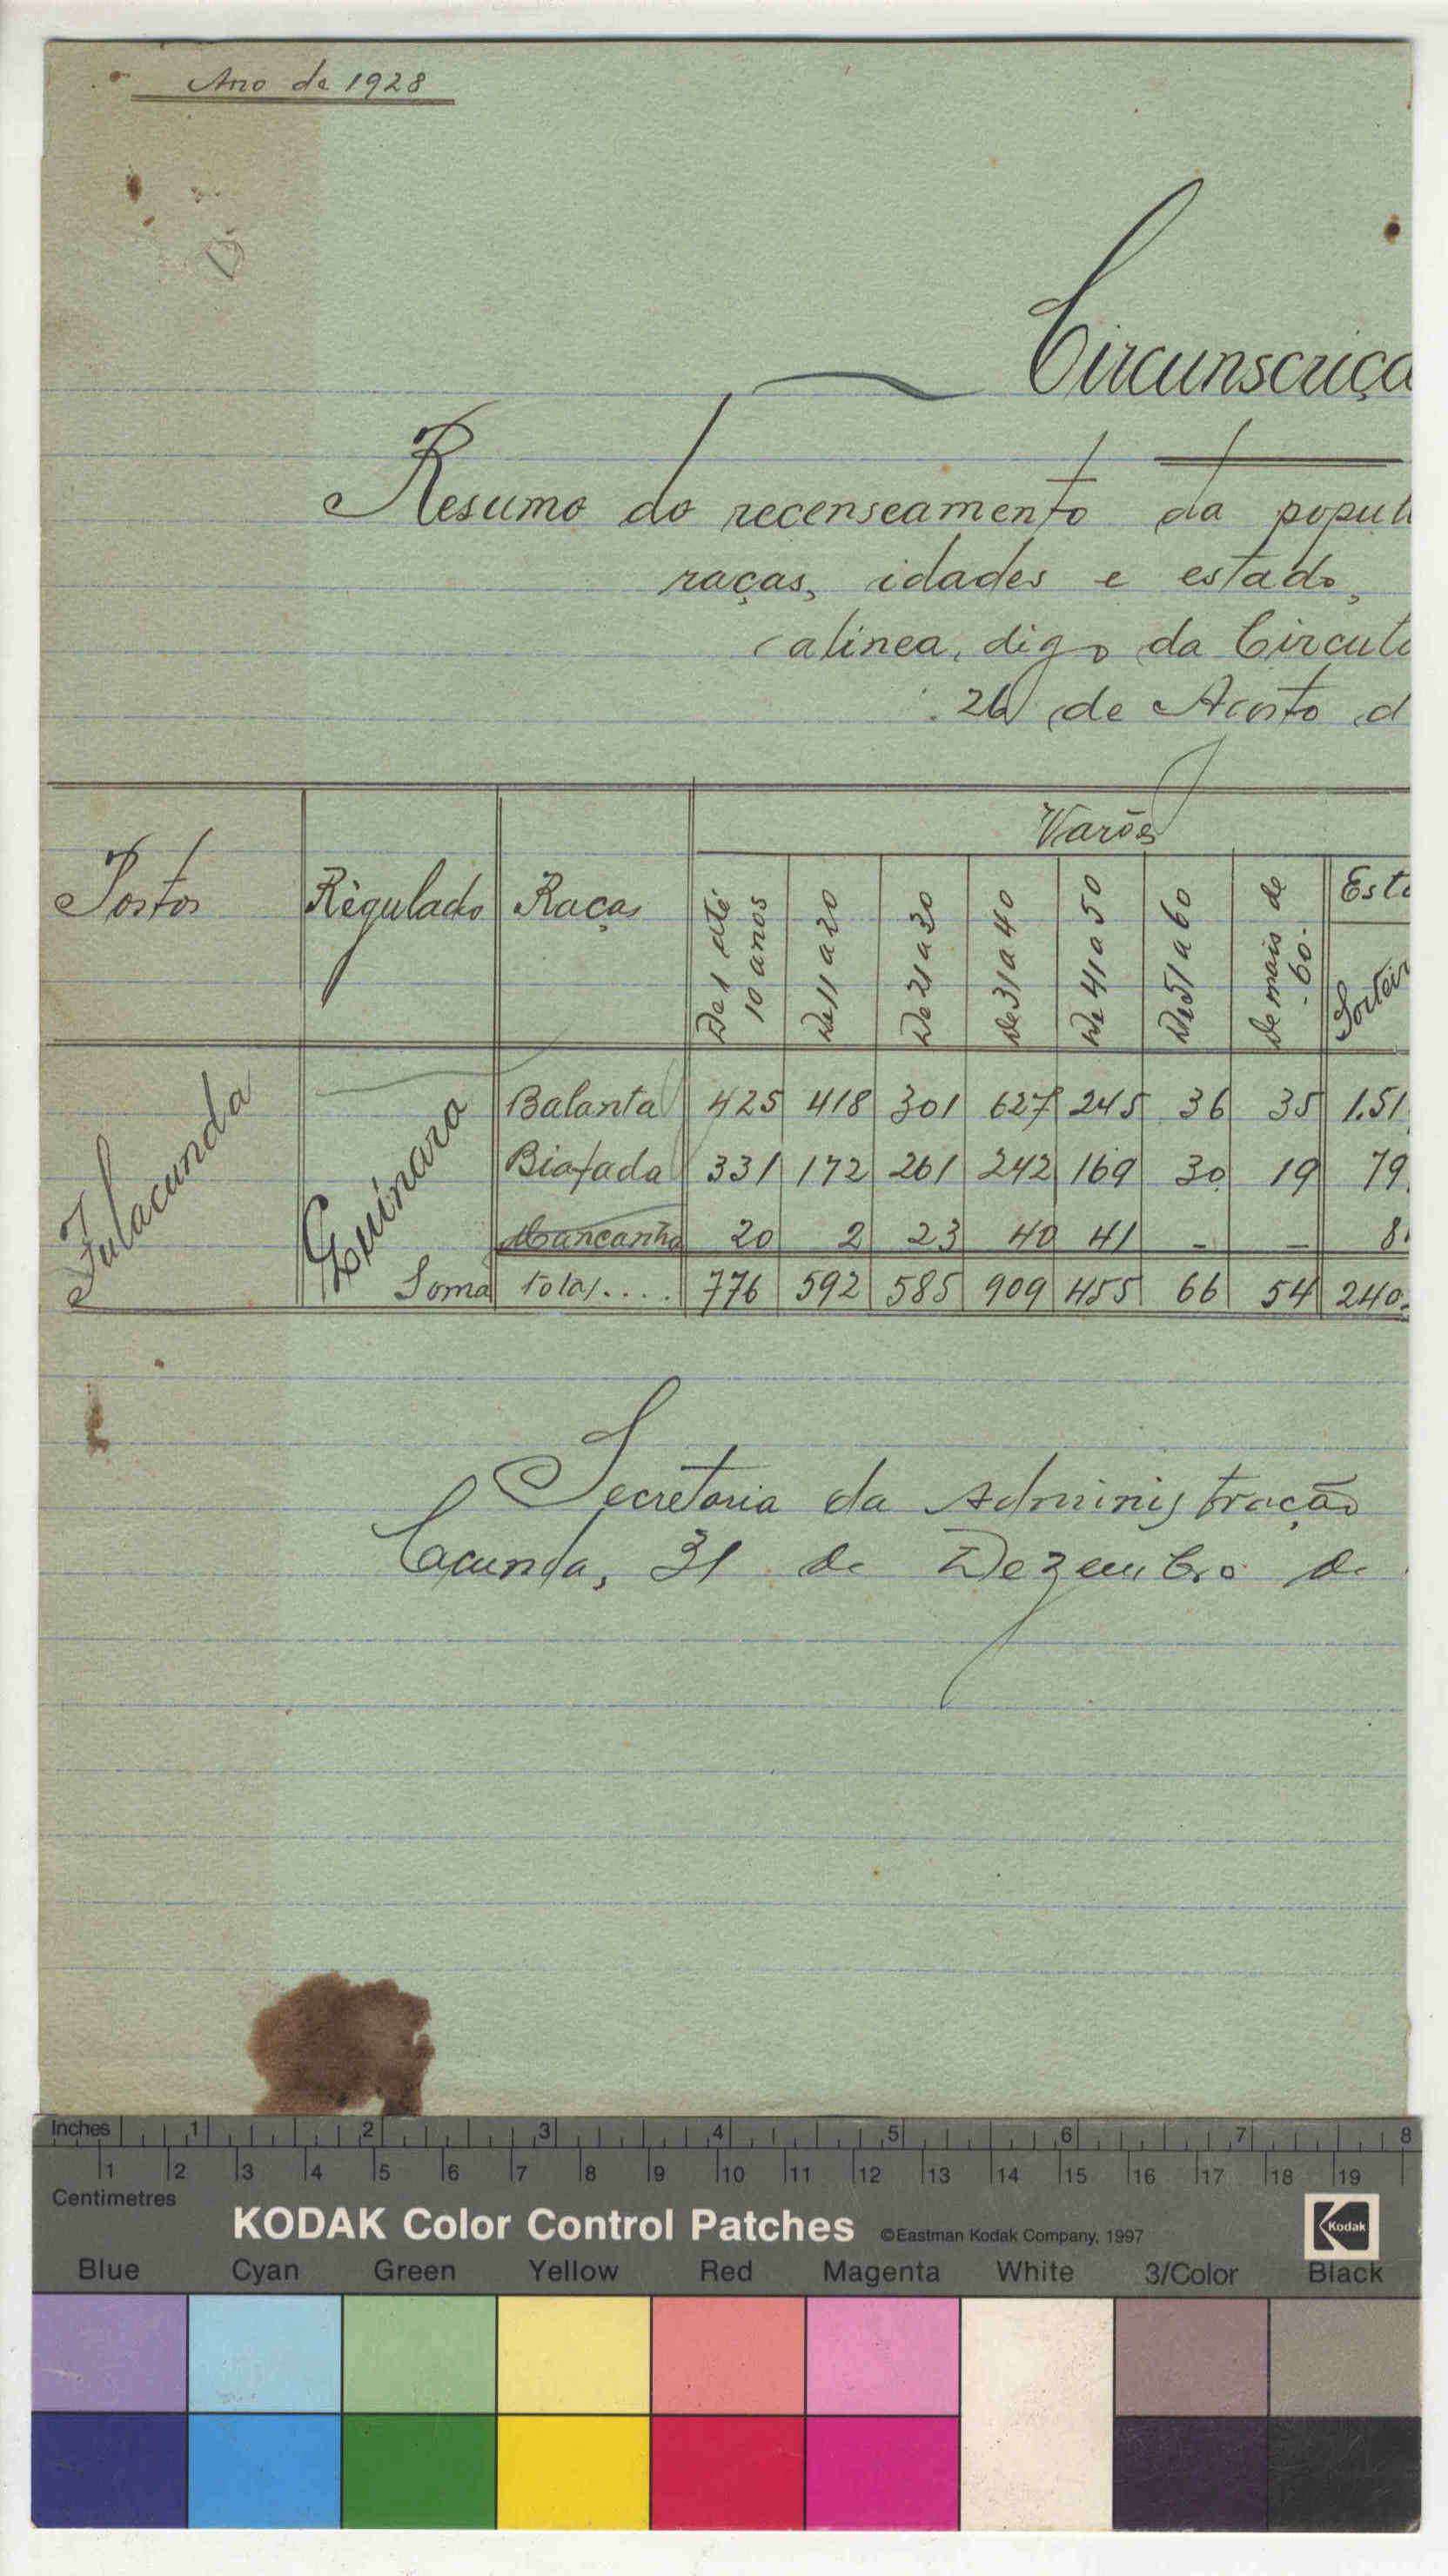 Ano de 1928
Circunscriçã
Resumo do recenseamento da popul
raças, idades e estado,
alinea, digo da Circula
26 de Agosto d
Postos Regulado Raças Varões
De 1 até 10 anos De 11 a 20 De 21 a 30 De 31 a 40 De 41 a 50 De 51 a 60 De mais de -60- Esta
Solteir
Fulacunda Guinara Balanta 425 418 301 627 245 36 35 1.51
Biafada 331 172 261 242 169 30 19 79
Mancanha 20 2 23 40 41 - - 8
Soma total.... 776 592 585 909 455 66 54 240
Secretaria da Administração
Cacunda, 31 de Dezembro de
Inches 1 2 3 4 5 6 7 8
1 2 3 4 5 6 7 8 9 10 11 12 13 14 15 16 17 18 19
Centimetres
KODAK Color Control Patches ©Eastman Kodak Company, 1997 Kodak
Blue Cyan Green Yellow Red Magenta White 3/Color Black